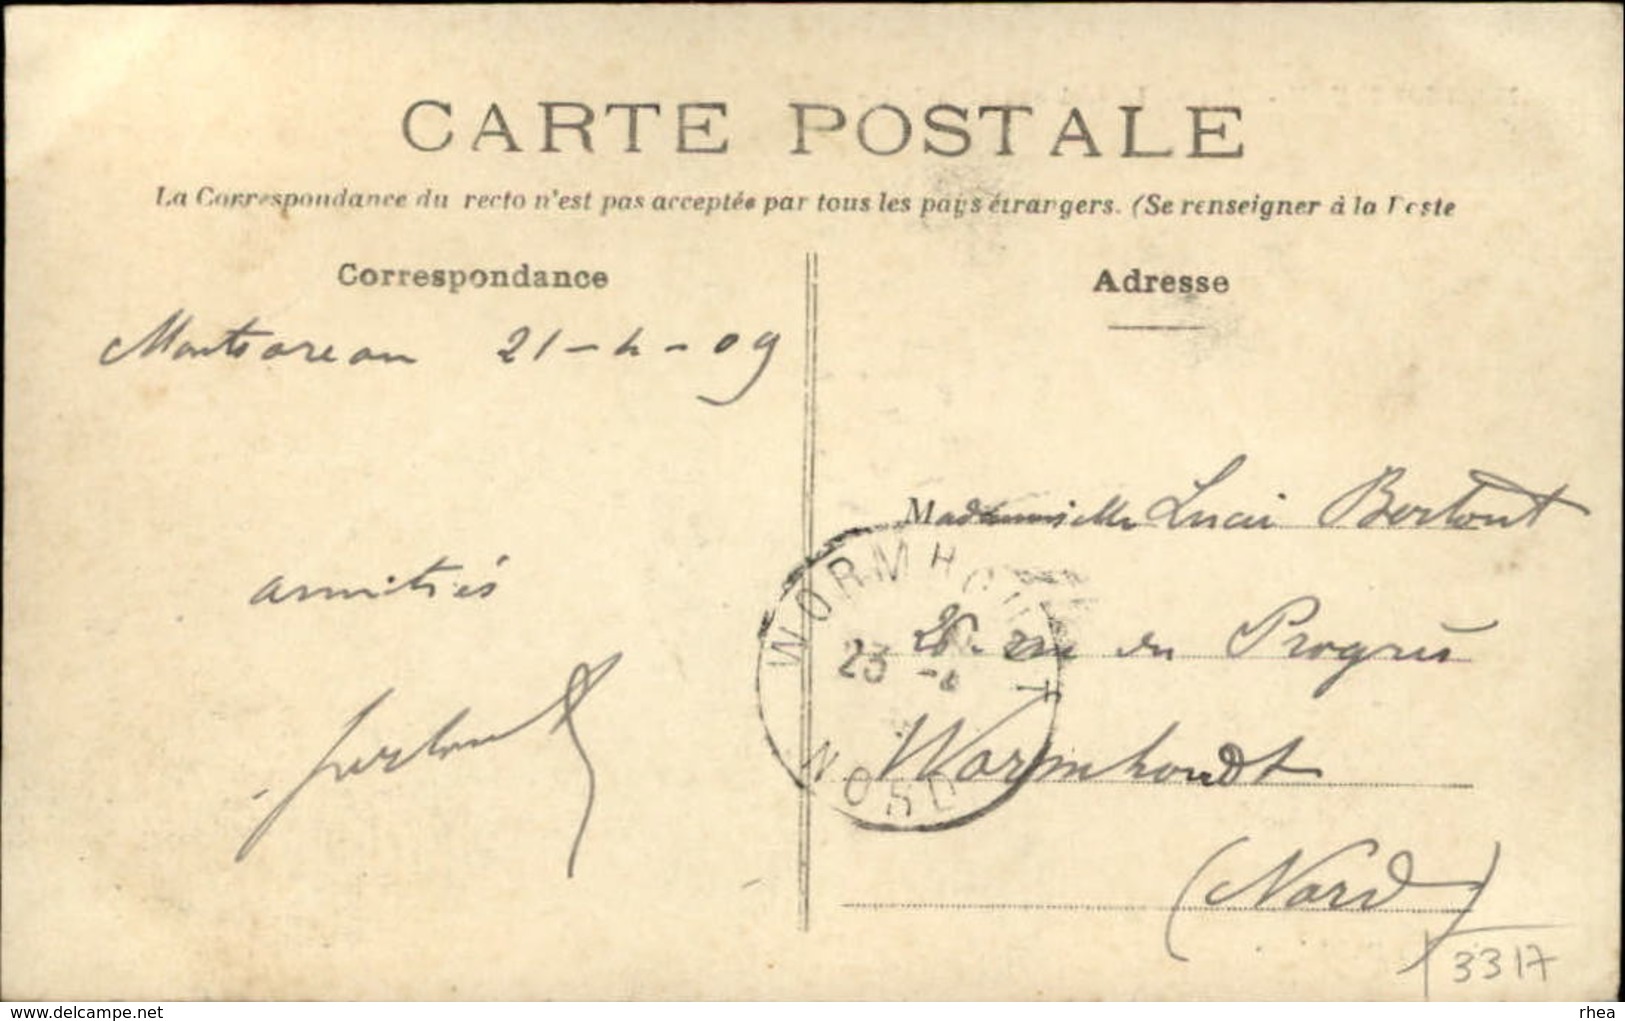 CARTE POSTALE
La Correspondance du recto n'est pas acceptée par tous les pays étrangers. (Se renseigner à la Poste
Correspondance
Montsoreau 21-4-09
amitiés
Adresse
Mademoiselle Lucie Bertout
26 rue du Progrès
Wormhoudt
(Nord)
WORMHOUDT
23 -4
NORD
3317
www.delcampe.net
rhea